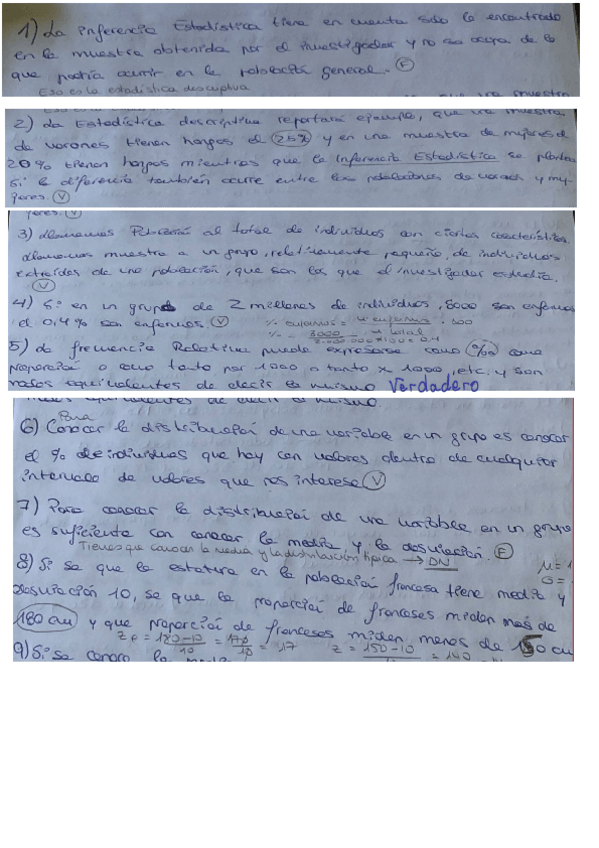 1) La Inferencia Estadística tiene en cuenta solo lo encontrado
en la muestra obtenida por el investigador y no se ocupa de lo
que podría ocurrir en la población general. (F)
Eso es la estadística descriptiva
2) La Estadística descriptiva reportará ejemplo, que una muestra
de varones tienen hongos el 25% y en una muestra de mujeres el
20% tienen hongos mientras que la Inferencia Estadística se plantea
si la diferencia también ocurre entre las poblaciones de varones y mu-
jeres. (V)
3) Llamamos Población al total de individuos con ciertas características.
Llamamos muestra a un grupo, relativamente pequeño, de individuos
extraídos de una población, que son los que el investigador estudia.
(V)
4) Si en un grupo de 2 millones de individuos, 8000 son enfermos
el 0,4% son enfermos (V)
5) La frecuencia Relativa puede expresarse como % como
proporción o como tanto por 1000 o tanto x 1000, etc, y son
modos equivalentes de decir lo mismo Verdadero
Para
6) Conocer la distribución de una variable en un grupo es conocer
el % de individuos que hay con valores dentro de cualquier
intervalo de valores que nos interese (V)
7) Para conocer la distribución de una variable en un grupo
es suficiente con conocer la media y la desviación. (F)
Tienes que conocer la media y la distribución típica → DN
8) Si se que la estatura en la población francesa tiene media y
desviación 10, se que la proporción de franceses miden más de
180 cm y que proporción de franceses miden menos de 150 cm
9) Si se conoce la